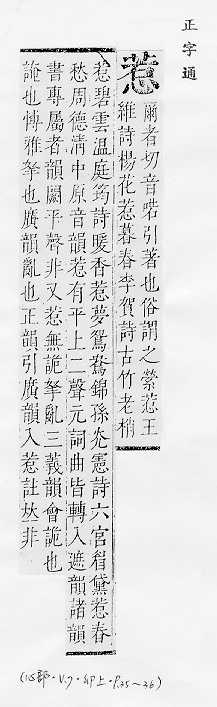 正字通
惹
爾者切音喏引著也俗謂之縈惹王
維詩楊花惹暮春李賀詩古竹老梢
惹碧雲温庭筠詩暖香惹夢鴛鴦錦孫光憲詩六宮眉黛惹春
愁周德清中原音韻惹有平上二聲元詞曲皆轉入遮韻諸韻
書專屬者韻闕平聲非又惹無詭拏亂三義韻會詭也
也愽雅拏也廣韻亂也王韻引廣韻入惹註𠀤非
(心部·V.7·卯上·P.35~36)